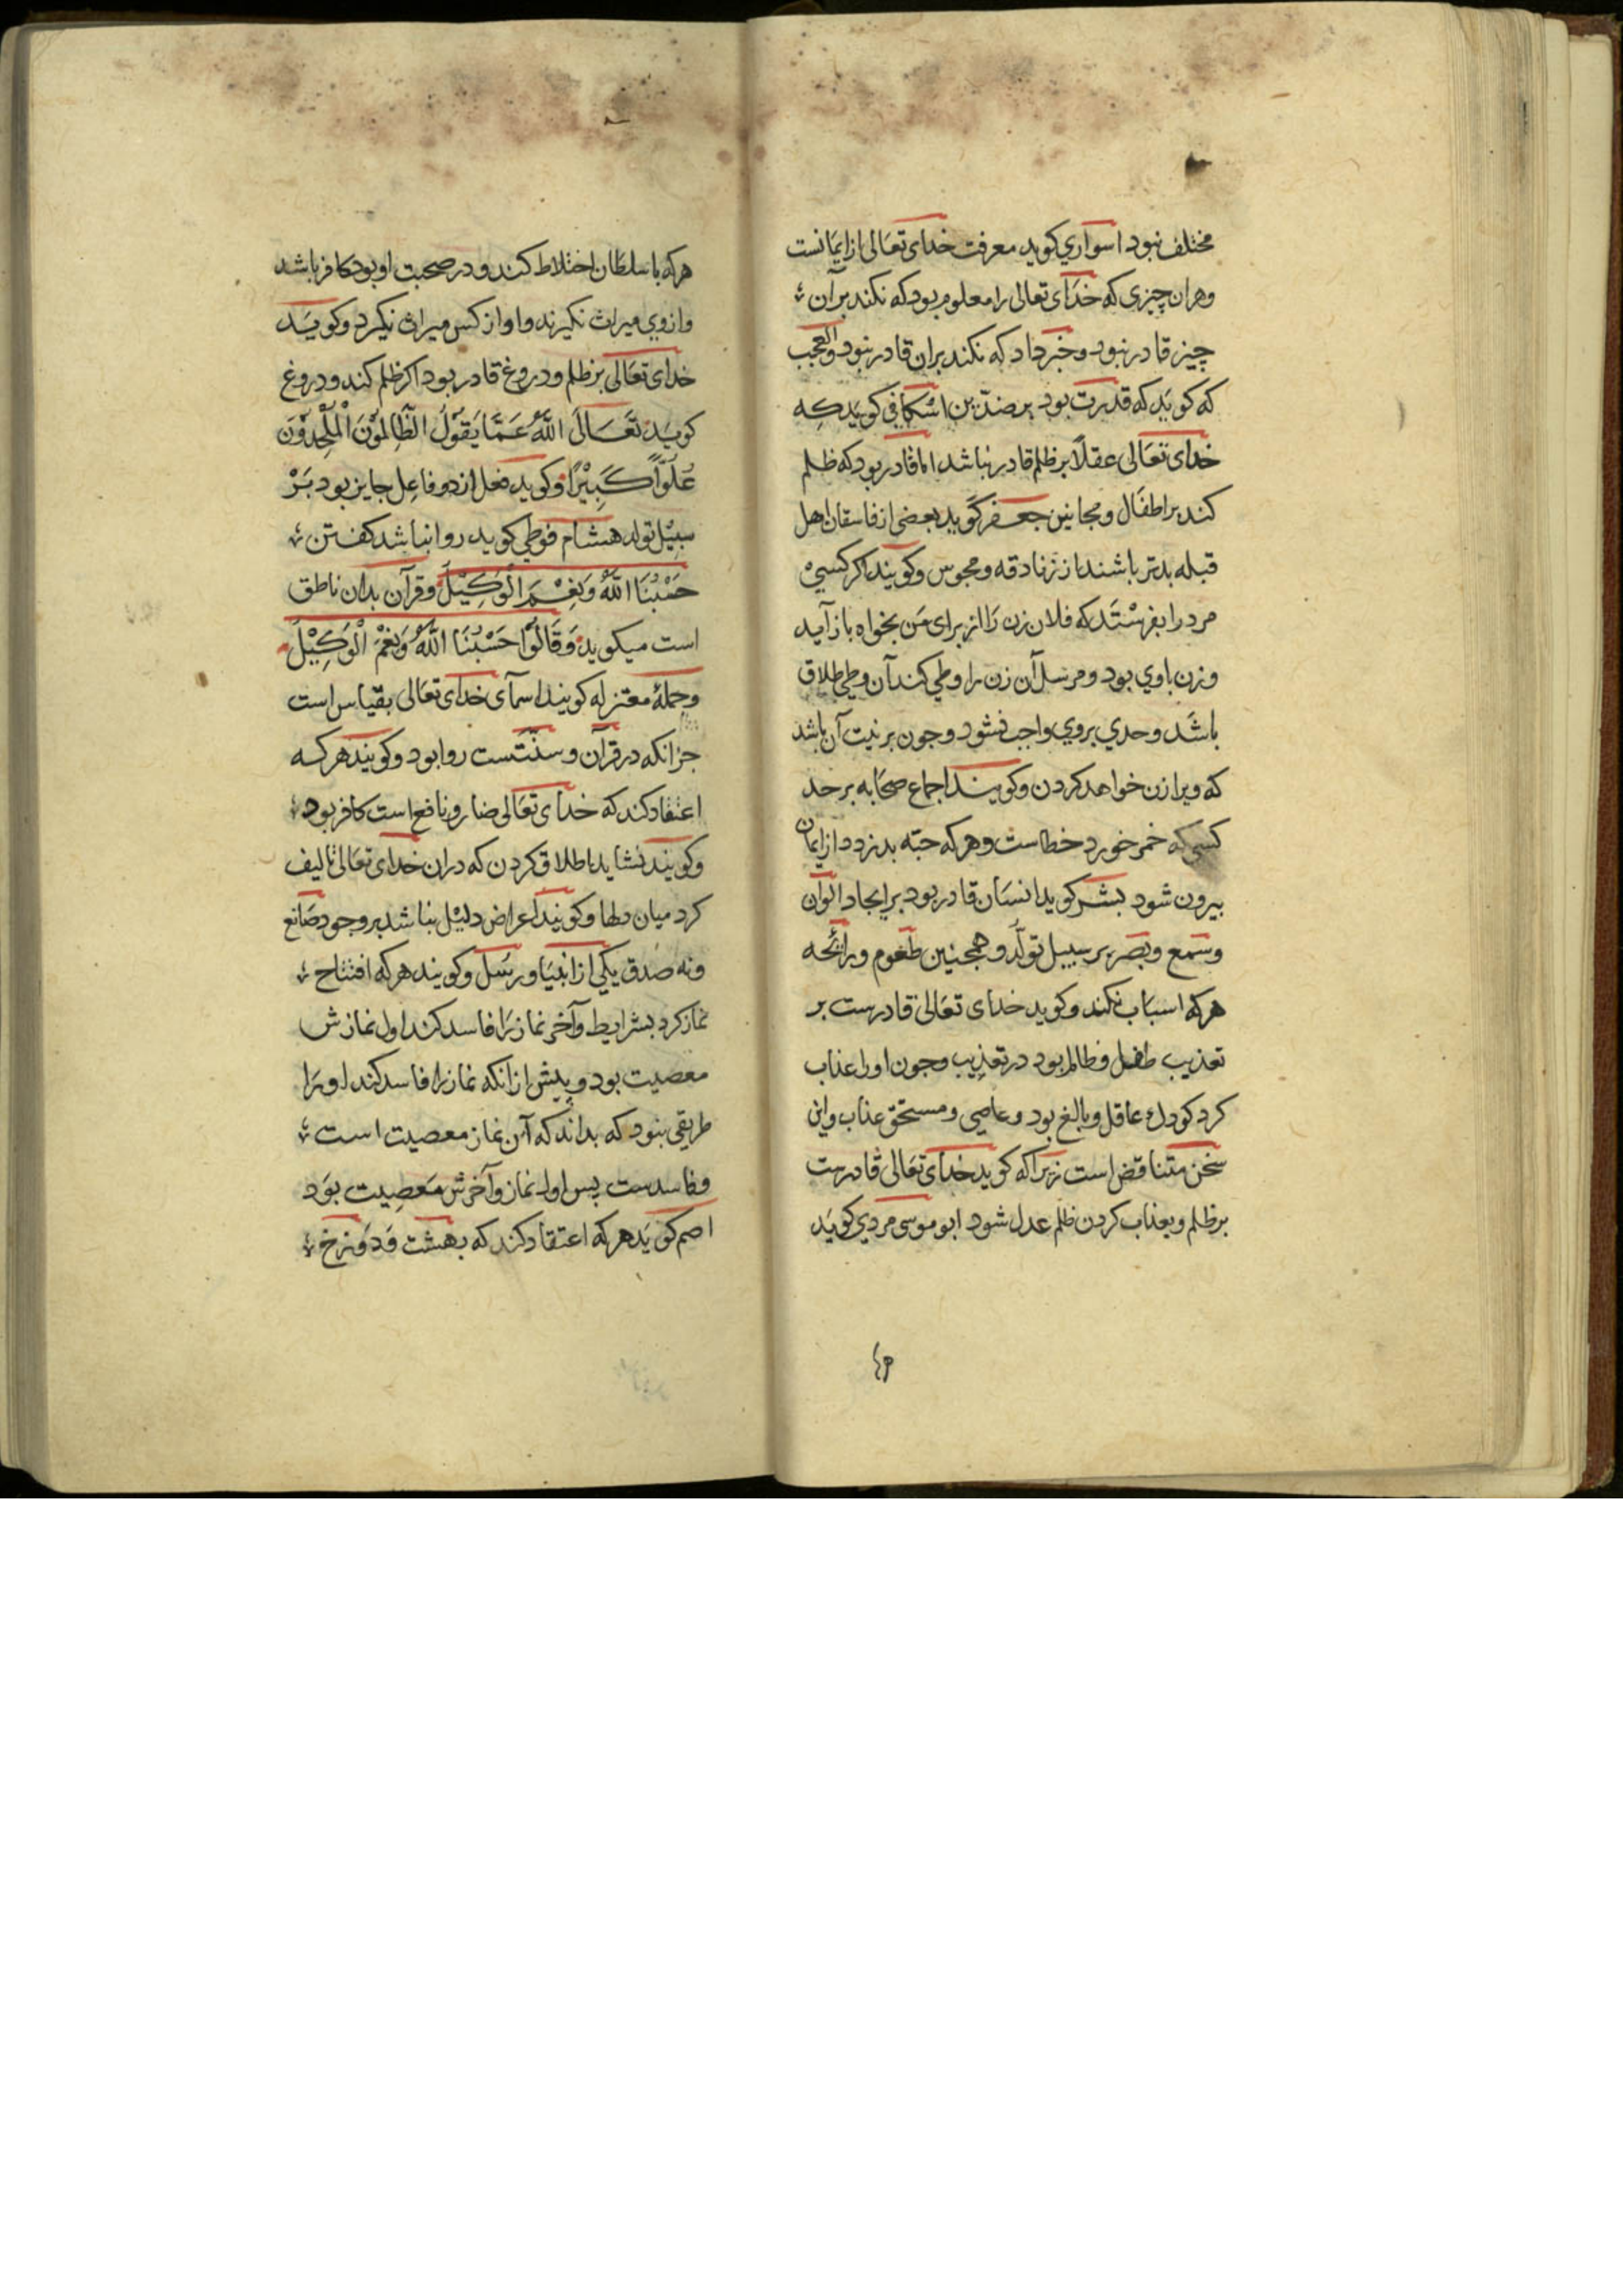 مختلف نبود اسواري كويد معرفت خداى تعالى از ايمانست
وهران چيزى كه خداى تعالى را معلوم بود كه نكند برآن
چيز قادر نبود وخبر داد كه نكند بران قادر نبود والعجب
كه كويد كه قدرت بود بر ضدين اسكافى كويد كه
خداى تعالى عقلاً بر ظلم قادر نباشد اما قادر بود كه ظلم
كند بر اطفال ومجانين جعفر كويد بعضى از فاسقان اهل
قبله بدتر باشند از زنادقه ومجوس وكويند اكر كسي
مرد را بفرستد كه فلان زن را از براى من بخواه باز آيد
وزن باوي بود ومرسل آن زن را وطي كند آن وطي طلاق
باشد وحدي بروي واجب نشود وجون بر نيت آن باشد
كه ويرا زن خواهد كردن وكويند اجماع صحابه بر حد
كسى كه خمر خورد خطاست وهركه حبّه بدزدد از ايمان
بيرون شود بشر كويد انسان قادر بود بر ايجاد الوان
وسمع وبصر بر سبيل تولّد وهمجنين طعوم ورائحه
هركه اسباب نكند وكويد خداى تعالى قادرست بر
تعذيب طفل وظالم بود در تعذيب وجون اورا عذاب
كرد كودك عاقل وبالغ بود وعاصى ومستحق عذاب واين
سخن متناقض است زيراكه كويد خداى تعالى قادرست
بر ظلم وبعذاب كردن ظلم عدل شود ابو موسى مردي كويد
هركه با سلطان اختلاط كند ودر صحبت او بود كافر باشد
وازوي ميراث نكيرند واو از كس ميراث نكيرد وكويد
خداى تعالى بر ظلم ودروغ قادر بود اكر ظلم كند ودروغ
كويد تَعَالَى اللّٰهُ عَمَّا يَقُوْلُ الظَّالِمُوْنَ الْمُلْحِدُوْنَ
عُلُوًّا كَبِيْرًا وكويد فعل از دو فاعل جايز بود بر
سبيل تولد هشام فوطي كويد روا نباشد كفتن
حَسْبُنَا اللّٰهُ وَنِعْمَ الْوَكِيْلُ وقرآن بدان ناطق
است ميكويد وَقَالُوْا حَسْبُنَا اللّٰهُ وَنِعْمَ الْوَكِيْلُ
وجملهٔ معتزله كويند اسمآى خداى تعالى بقياس است
جز انكه در قرآن وسنّتست روا بود وكويند هركه
اعتقاد كند كه خداى تعالى ضار ونافع است كافر بود
وكويند نشايد اطلاق كردن كه در ان خداى تعالى تاليف
كرد ميان دلها وكويند اعراض دليل نباشد بر وجود صانع
ونه صدق يكي از انبيا ورسل وكويند هركه افتتاح
نماز كرد بشرايط وآخر نماز را فاسد كند اول نمازش
معصيت بود وپيش از انكه نماز را فاسد كند او را
طريقى نبود كه بداند كه آن نماز معصيت است
وفاسدست پس اول نماز وآخرش معصيت بود
اصم كويد هركه اعتقاد كند كه بهشت ودوزخ